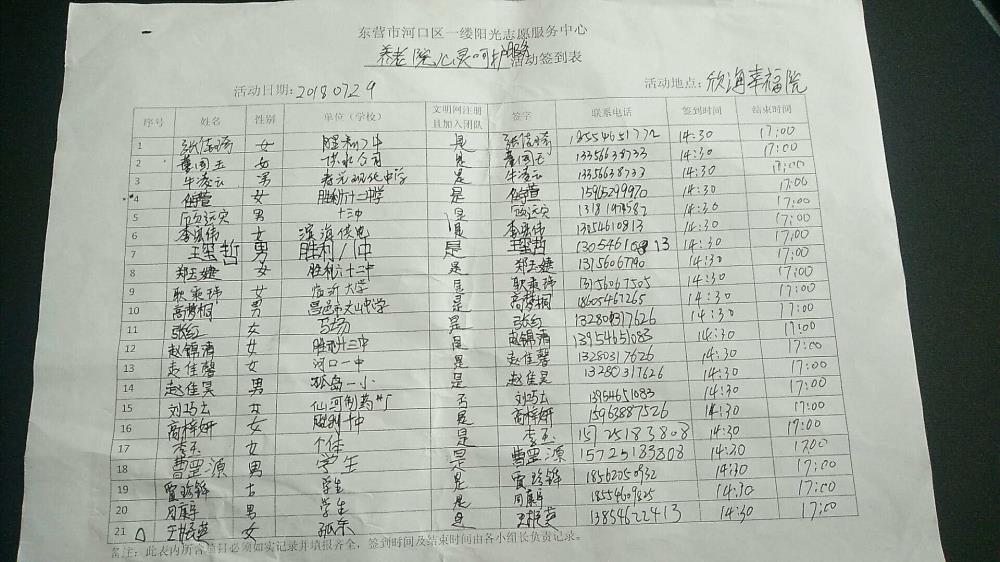 东营市河口区一缕阳光志愿服务中心
养老院心灵呵护服务活动签到表
活动日期:20180729 活动地点:欣海幸福院
序号 姓名 性别 单位(学校) 文明网注册且加入团队 签字 联系电话 签到时间 结束时间
1 张佳琦 女 胜利一中 是 张佳琦 18554651772 14:30 17:00
2 董国玉 女 供水公司 是 董国玉 13356638733 14:30 17:00
3 牛凌云 男 寿光现代中学 是 牛凌云 13356638733 14:30 17:00
4 女 胜利十二中学 是 15965299970 14:30 17:00
5 男 十三中 是 14:30 17:00
6 女 滨海供电 是 13054610813 14:30 17:00
7 王玺哲 男 胜利一中 是 王玺哲 14:30 17:00
8 郑玉婕 女 胜利六十二中 是 郑玉婕 14:30 17:00
9 耿乘玮 女 临沂大学 是 耿乘玮 14:30 17:00
10 高梦桐 男 昌邑市文山中学 是 高梦桐 18605467265 14:30 17:00
11 张红 女 是 张红 13280317626 14:30 17:00
12 赵锦清 女 胜利十三中 是 赵锦清 13954651083 14:30 17:00
13 赵佳馨 女 河口一中 是 赵佳馨 13280317626 14:30 17:00
14 赵佳昊 男 孤岛一小 是 赵佳昊 13280317626 14:30 17:00
15 刘巧云 女 仙河制药厂 否 刘巧云 13954651083 14:30 17:00
16 高梓妍 女 胜利十中 是 高梓妍 15963887526 14:30 17:00
17 李玉 女 个体 是 李玉 15725183808 14:30 17:00
18 曹罡源 男 学生 是 曹罡源 15725183808 14:30 17:00
19 贾珍铎 女 学生 是 贾珍铎 18562050932 14:30 17:00
20 男 学生 是 18554609825 14:30 17:00
21 女 孤东 是 13854622413 14:30 17:00
备注:此表内所含项目必须如实记录并填报齐全,签到时间及结束时间由各小组长负责记录。